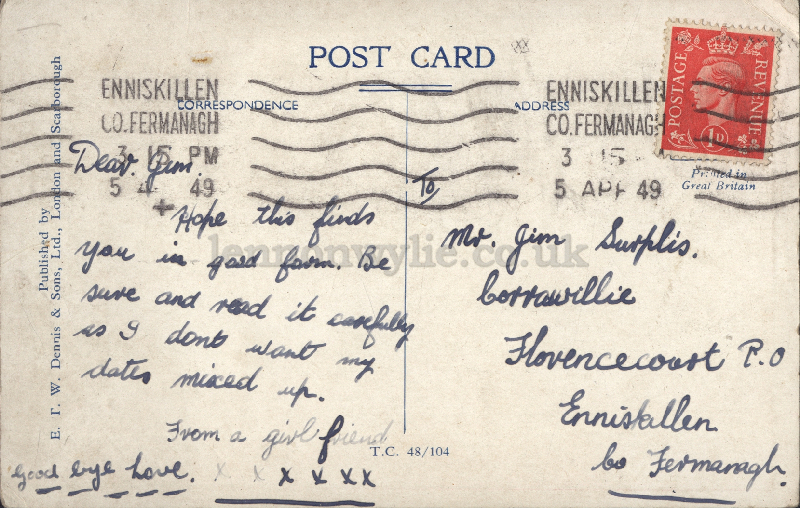 POST CARD
CORRESPONDENCE
ADDRESS
ENNISKILLEN
CO.FERMANAGH
3 15 PM
5 4 49
ENNISKILLEN
CO.FERMANAGH
3 15
5 APR 49
POSTAGE
REVENUE
1D
Printed in
Great Britain
Published by
E. T. W. Dennis & Sons, Ltd., London and Scarborough
Dear Jim.
Hope this finds
you in good form. Be
sure and read it carefully
as I dont want my
dates mixed up.
From a girl friend
Good bye Love. x x x x x x
To
Mr. Jim Surplis.
Corrawillie
Florencecourt P.O
Enniskillen
Co Fermanagh.
T.C. 48/104
lennonwylie.co.uk